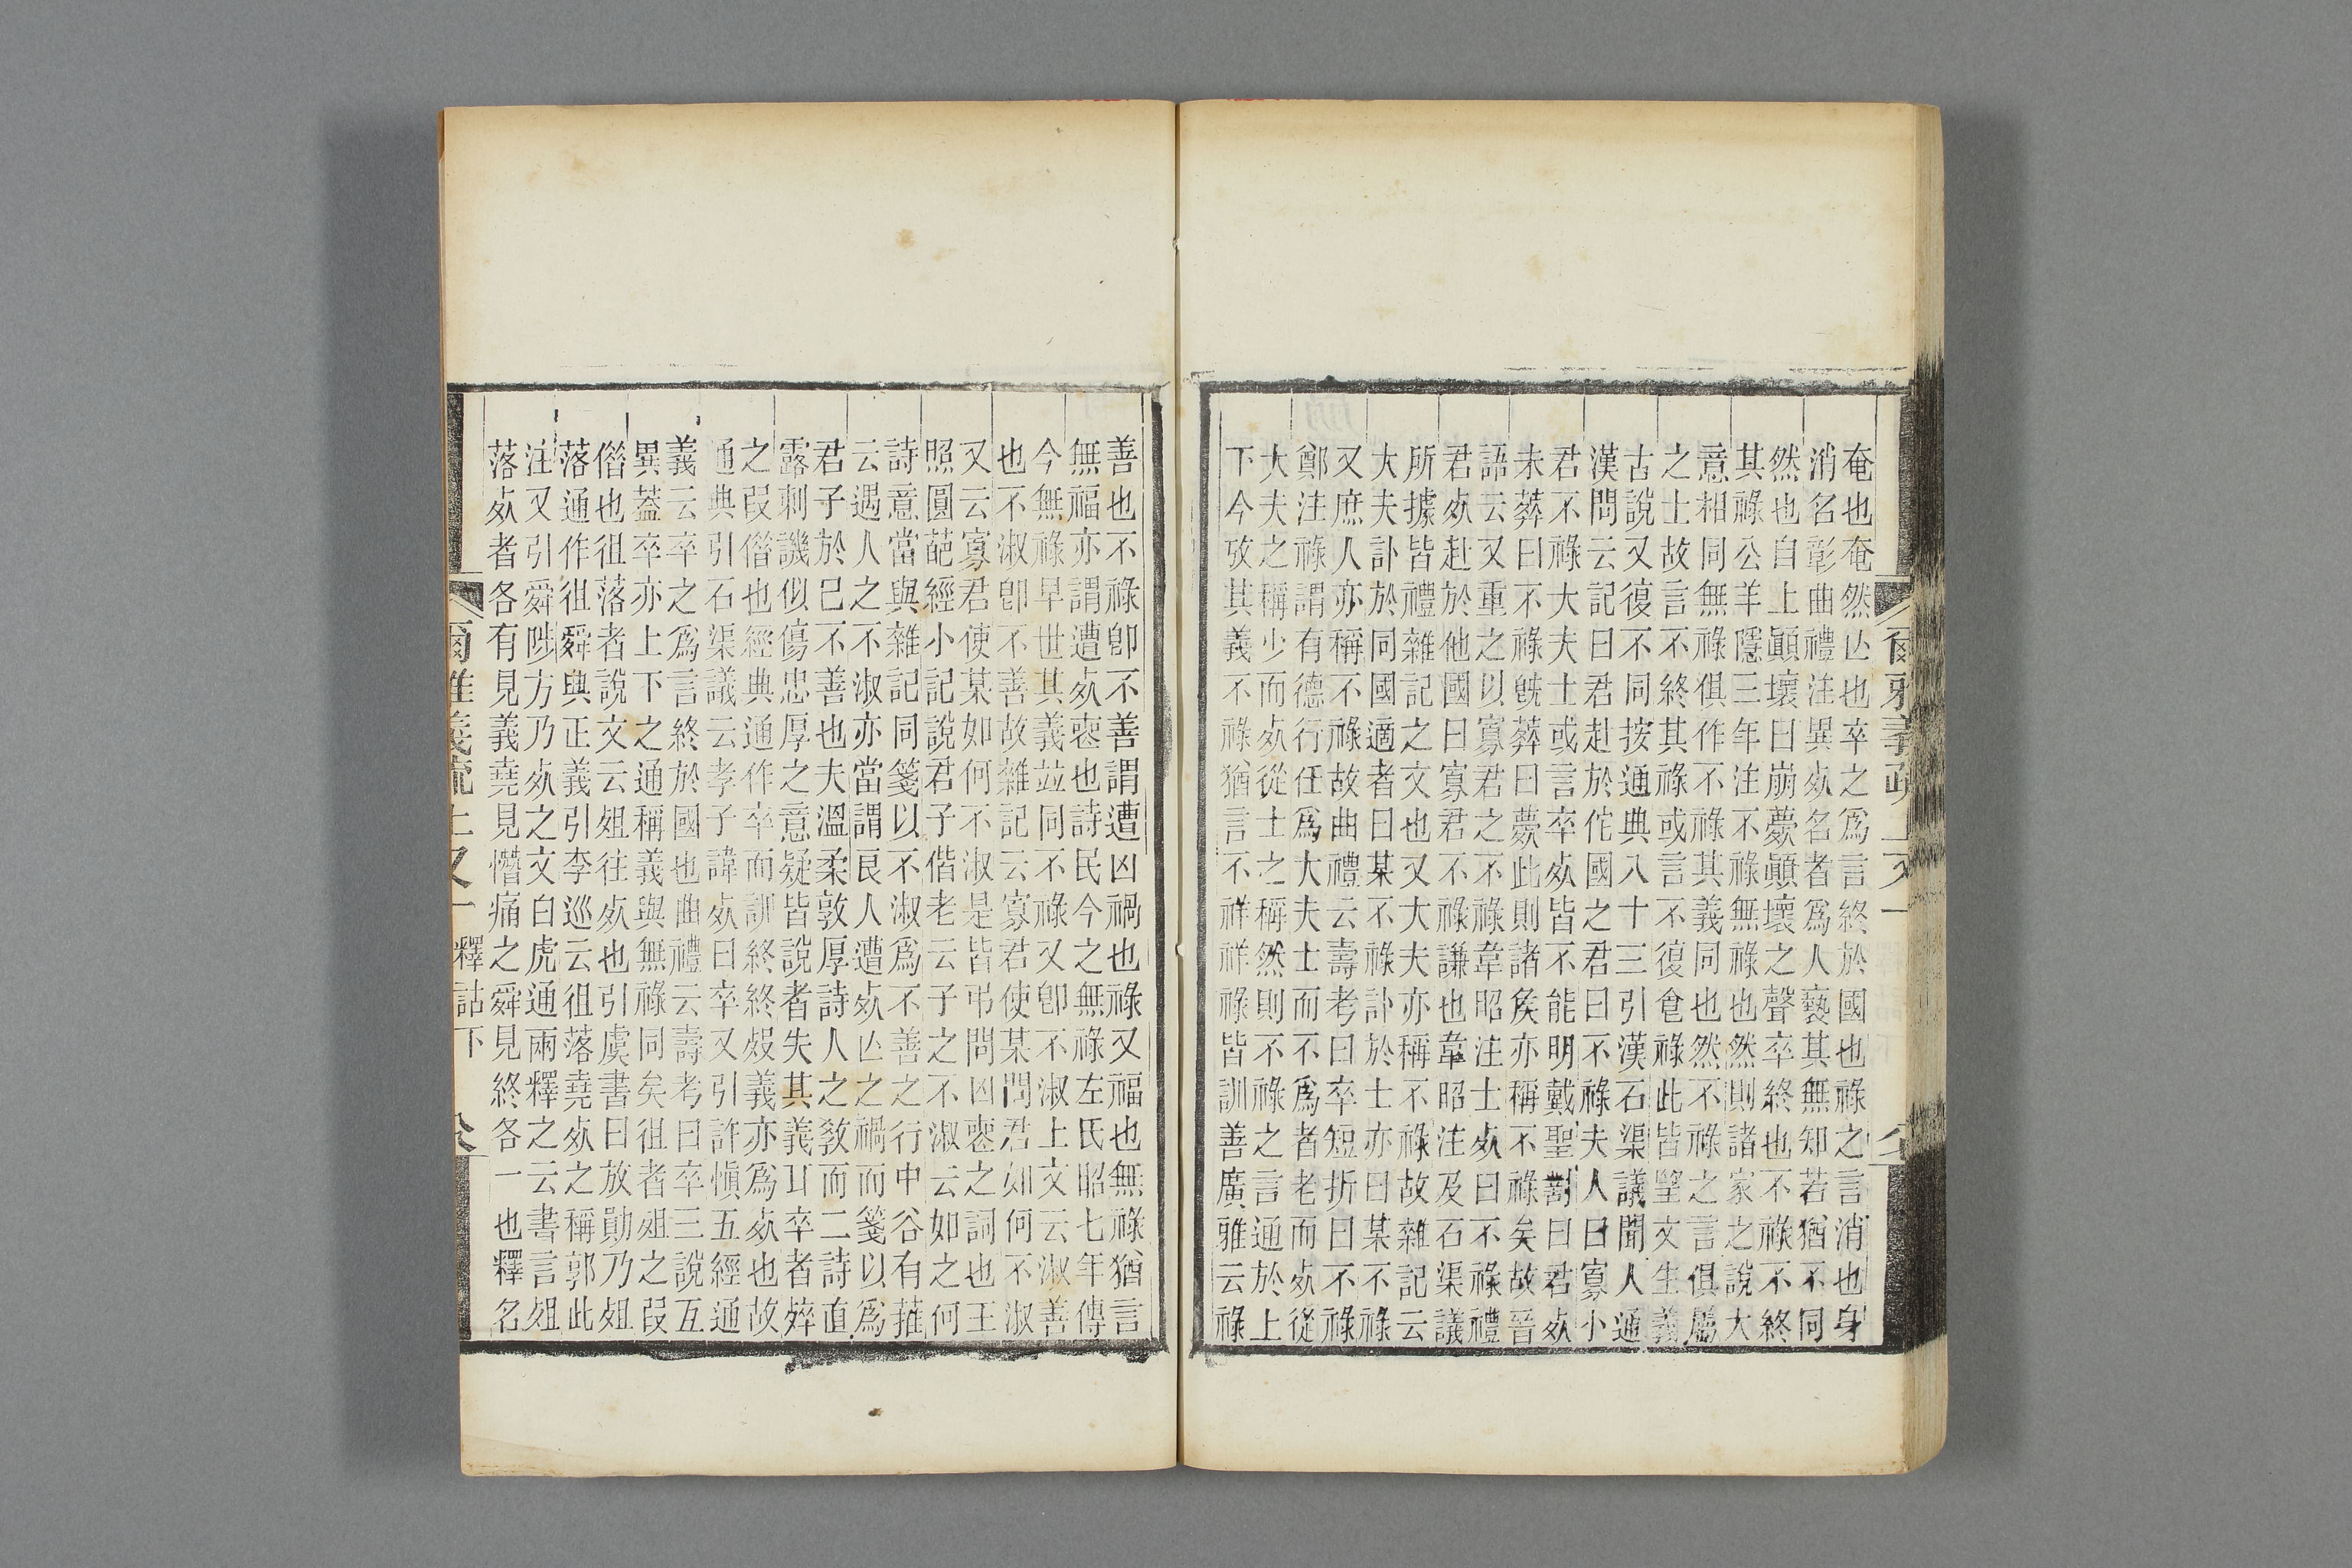 奄也奄然亾也卒之爲言終於國也祿之言消也身
消名彰曲禮注異㱙名者爲人褻其無知若猶不同
然也自上顚壞曰崩薨顚壞之聲卒終也不祿不終
其祿公羊隱三年注不祿無祿也然則諸家之說大
意相同無祿俱作不祿其義同也然不祿之言俱屬
之士故言不終其祿或言不復食祿此皆望文生義
古說又復不同按通典八十三引漢石渠議聞人通
漢問云記曰君赴於佗國之君曰不祿夫人曰寡小
君不祿大夫士或言卒㱙皆不能明戴聖對曰君㱙
未葬曰不祿旣葬曰薨此則諸矦亦稱不祿矣故晉
語云又重之以寡君之不祿韋昭注士㱙曰不祿禮
君㱙赴於他國曰寡君不祿謙也韋昭注及石渠議
所據皆禮雜記之文也又大夫亦稱不祿故雜記云
大夫訃於同國適者曰某不祿訃於士亦曰某不祿
又庶人亦稱不祿故曲禮云壽考曰卒短折曰不祿
鄭注祿謂有德行任爲大夫士而不爲者老而㱙從
大夫之稱少而㱙從士之稱然則不祿之言通於上
下今攷其義不祿猶言不祥祥祿皆訓善廣雅云祿
爾雅義疏 上又一
善也不祿卽不善謂遭凶禍也祿又福也無祿猶言
無福亦謂遭㱙喪也詩民今之無祿左氏昭七年傳
今無祿早世其義竝同不祿又卽不淑上文云淑善
也不淑卽不善故雜記云寡君使某問君如何不淑
又云寡君使某如何不淑是皆弔問凶喪之詞也王
照圓葩經小記說君子偕老云子之不淑云如之何
詩意當與雜記同箋以不淑爲不善之行中谷有蓷
云遇人之不淑亦當謂艮人遭㱙亾之禍而箋以爲
君子於己不善也夫溫柔敦厚詩人之敎而二詩直
露刺譏似傷忠厚之意疑皆說者失其義耳卒者㱙
之叚偺也經典通作卒而訓終終㱙義亦爲㱙也故
通典引石渠議云孝子諱㱙曰卒又引許愼五經通
義云卒之爲言終於國也曲禮云壽考曰卒三說互
異蓋卒亦上下之通稱義與無祿同矣徂者殂之叚
偺也徂落者說文云殂往㱙也引虞書曰放勛乃殂
落通作徂舜典正義引李巡云徂落堯㱙之稱郭此
注又引舜陟方乃㱙之文白虎通兩釋之云書言殂
落㱙者各有見義堯見憯痛之舜見終各一也釋名
爾雅義疏上又一 釋詁下